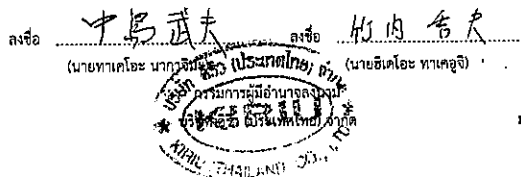 ลงชื่อ 中島武夫 ลงชื่อ 竹内 秀夫
(นายทาเคโอะ นากาจิมะ) (นายฮิเดโอะ ทาเคอูจิ)
กรรมการผู้มีอำนาจลงนาม
บริษัท คิริว (ประเทศไทย) จำกัด
บริษัท คิริว (ประเทศไทย) จำกัด
KIRIU
KIRIU (THAILAND) CO., LTD.